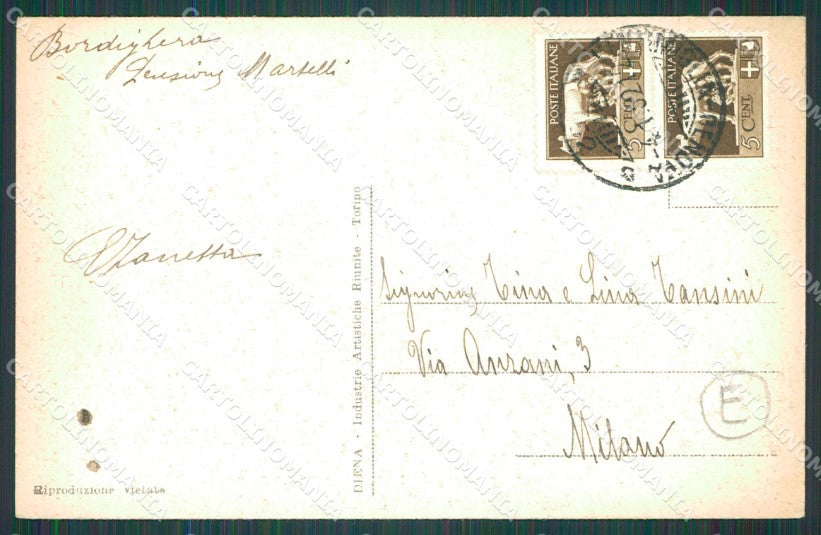 Bordighera
Pensione Martelli
Zanetta
Signorine Tina e Lina Tansini
Via Anzani, 3
Milano
E
POSTE ITALIANE
5 CENT.
POSTE ITALIANE
5 CENT.
GENOVA
DIENA - Industrie Artistiche Riunite - Torino
Riproduzione vietata
CARTOLINOMANIA